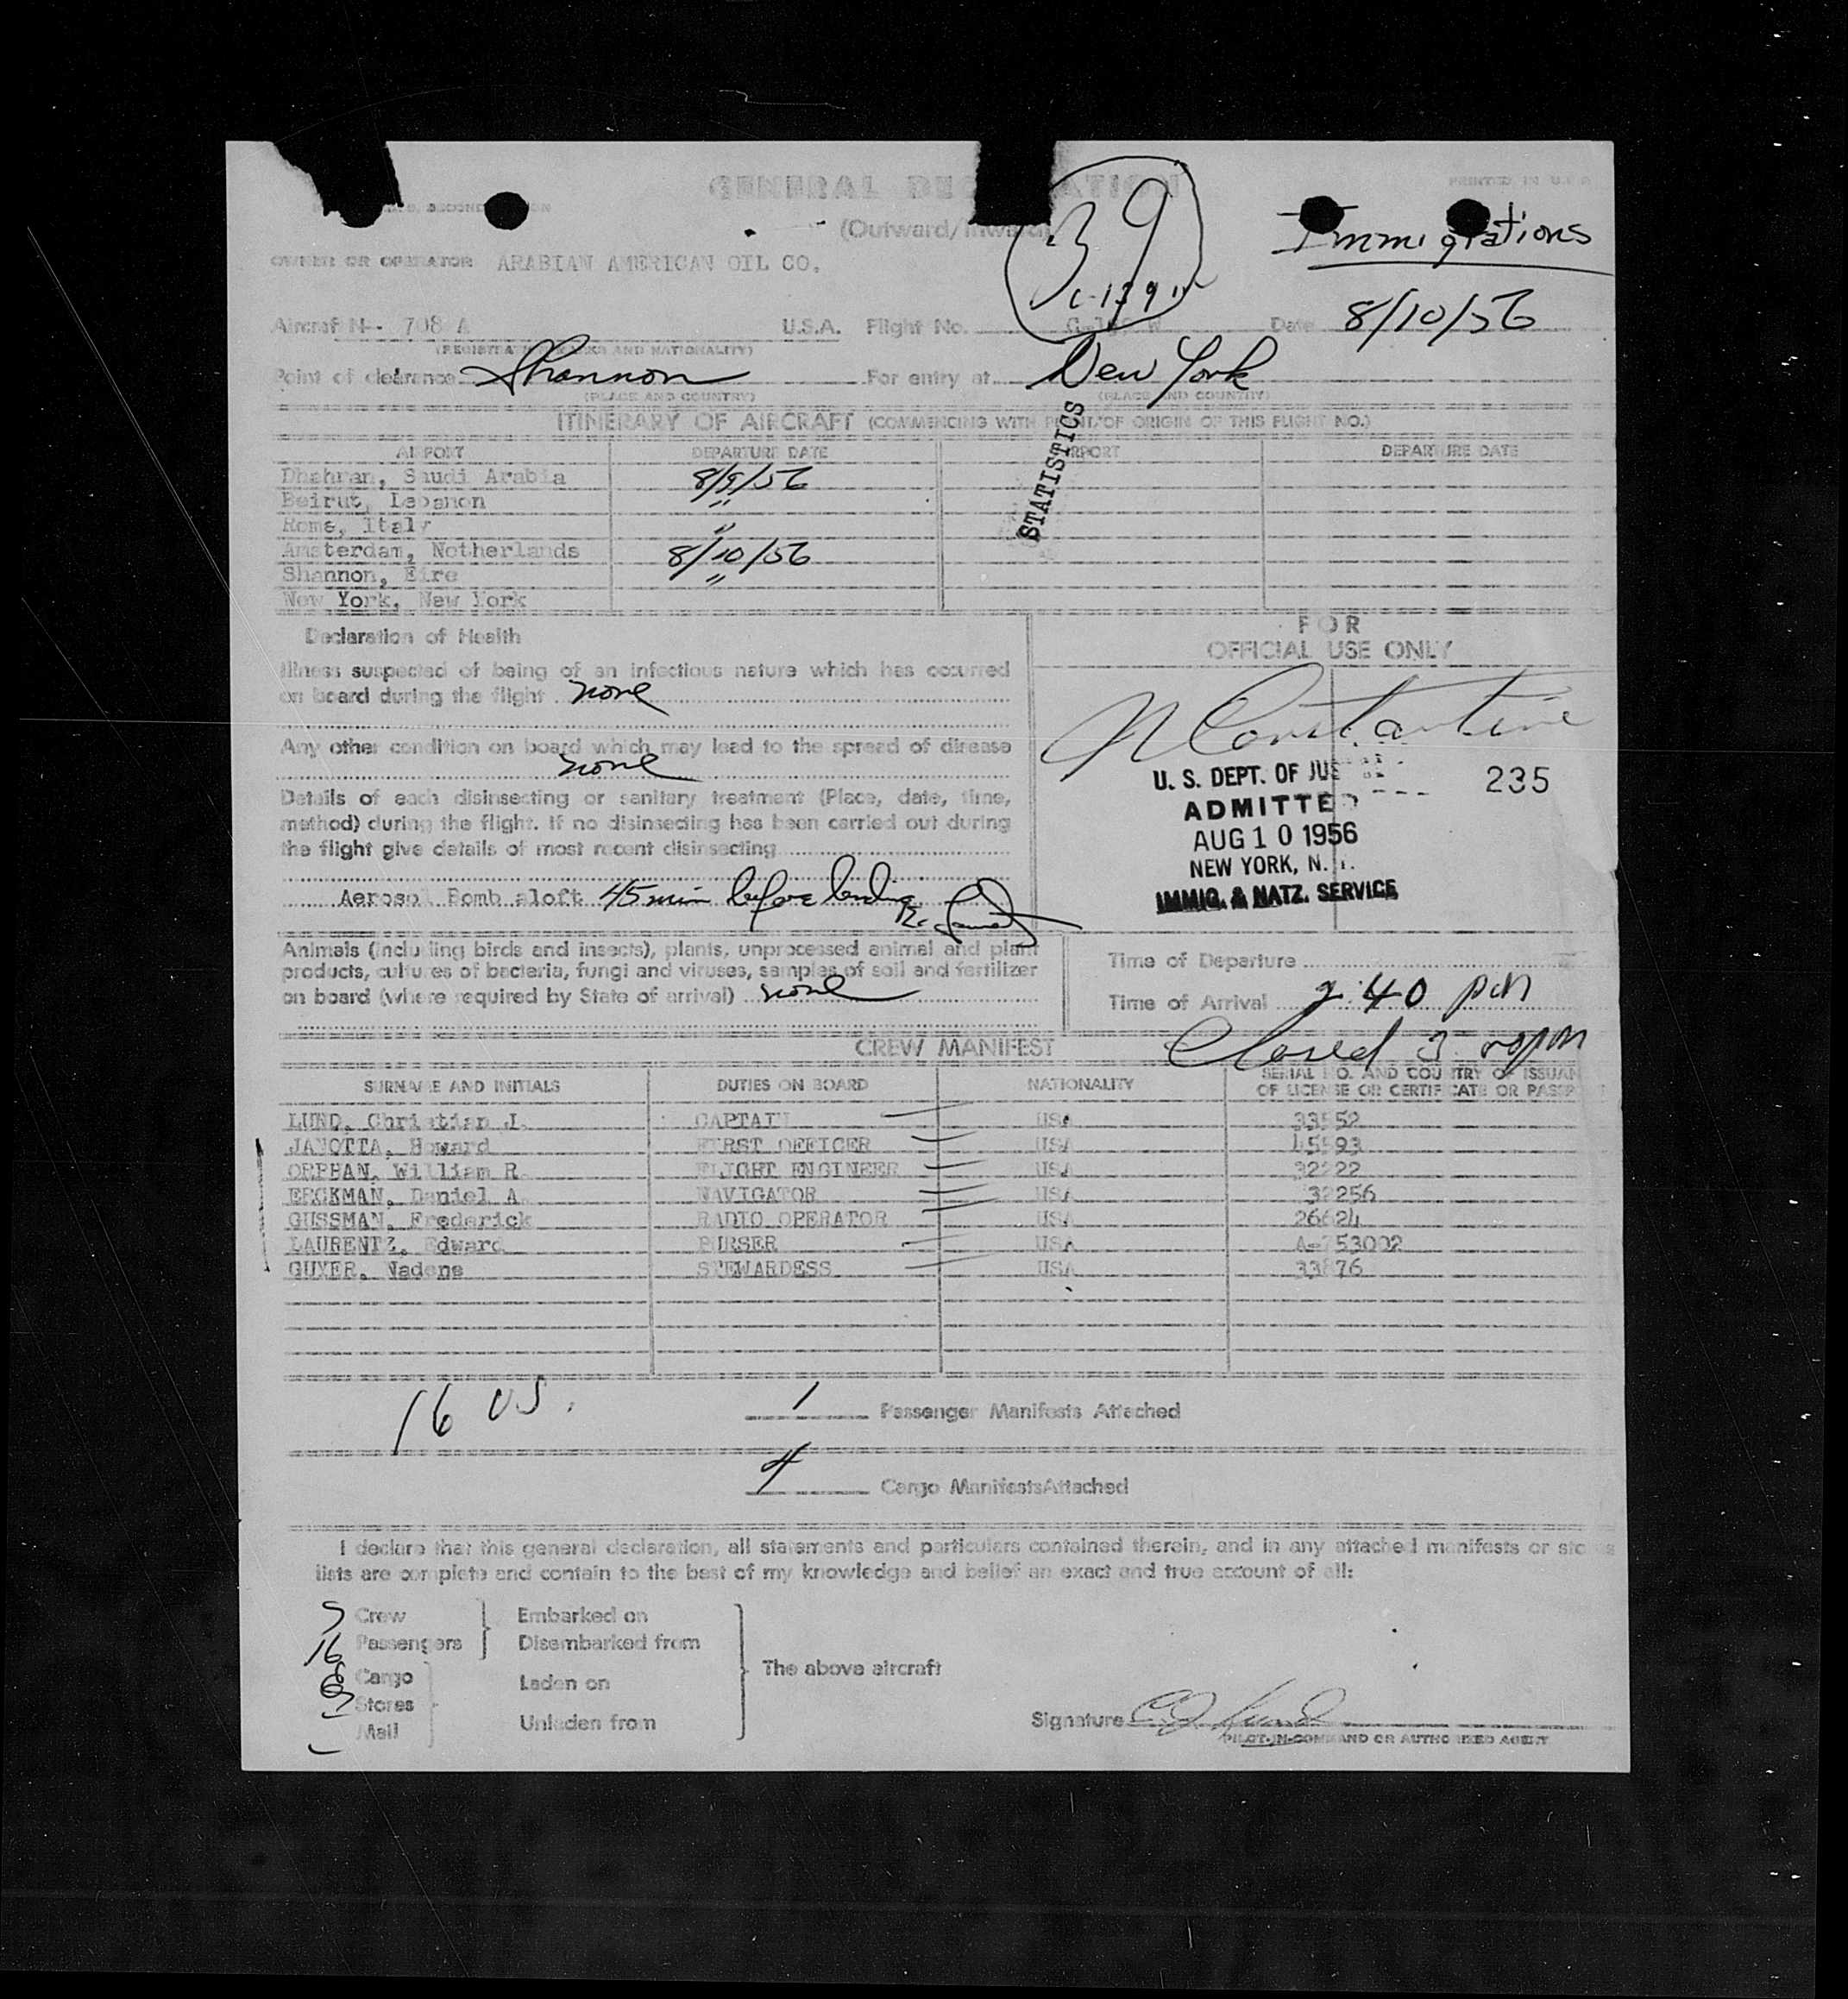 PRINTED IN U.S.A.
GENERAL
(Outward/Inward)
39
Immigrations
OWNER OR OPERATOR ARABIAN AMERICAN OIL CO.
Aircraf N-- 708 A U.S.A. Flight No. Date 8/10/56
(REGISTRATION MARKS AND NATIONALITY)
Point of clearance Shannon For entry at New York
(PLACE AND COUNTRY) (PLACE AND COUNTRY)
STATISTICS
ITINERARY OF AIRCRAFT (COMMENCING WITH POINT OF ORIGIN OF THIS FLIGHT NO.)
AIRPORT DEPARTURE DATE AIRPORT DEPARTURE DATE
Dhahran, Saudi Arabia 8/9/56
Beirut, Lebanon "
Rome, Italy "
Amsterdam, Netherlands 8/10/56
Shannon, Eire "
New York, New York
Declaration of Health
Illness suspected of being of an infectious nature which has occurred
on board during the flight none
Any other condition on board which may lead to the spread of disease
none
Details of each disinsecting or sanitary treatment (Place, date, time,
method) during the flight. If no disinsecting has been carried out during
the flight give details of most recent disinsecting
Aerosol Bomb aloft 45 min before landing
FOR
OFFICIAL USE ONLY
N Constantine
U. S. DEPT. OF JUS
235
ADMITTED
AUG 10 1956
NEW YORK, N. Y.
IMMIG. & NATZ. SERVICE
Animals (including birds and insects), plants, unprocessed animal and plant
products, cultures of bacteria, fungi and viruses, samples of soil and fertilizer
on board (where required by State of arrival) none
Time of Departure
Time of Arrival 2:40 pm
Closed 3 00pm
CREW MANIFEST
SURNAME AND INITIALS DUTIES ON BOARD NATIONALITY SERIAL NO. AND COUNTRY OF ISSUAN
OF LICENSE OR CERTIFICATE OR PASSP
LUND, Christian J. CAPTAIN USA 33 52
JANOTTA, Howard FIRST OFFICER USA 45 93
ORPHAN, William R. FLIGHT ENGINEER USA 32 22
BECKMAN, Daniel A. NAVIGATOR USA 32256
GUSSMAN, Frederick RADIO OPERATOR USA 26624
LAURENTZ, Edward PURSER USA A- 53002
GUYER, Nadene STEWARDESS USA 33 76
16 US.
1 Passenger Manifests Attached
4 Cargo Manifests Attached
I declare that this general declaration, all statements and particulars contained therein, and in any attached manifests or stores
lists are complete and contain to the best of my knowledge and belief an exact and true account of all:
Crew Embarked on
16 Passengers Disembarked from
Cargo Laden on The above aircraft
Stores
Mail Unladen from
Signature C J Lund
PILOT-IN-COMMAND OR AUTHORIZED AGENT